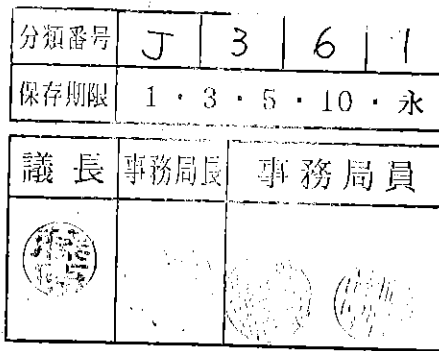 分類番号 J 3 6 1
保存期限 1・3・5・10・永
議長 事務局長 事務局員